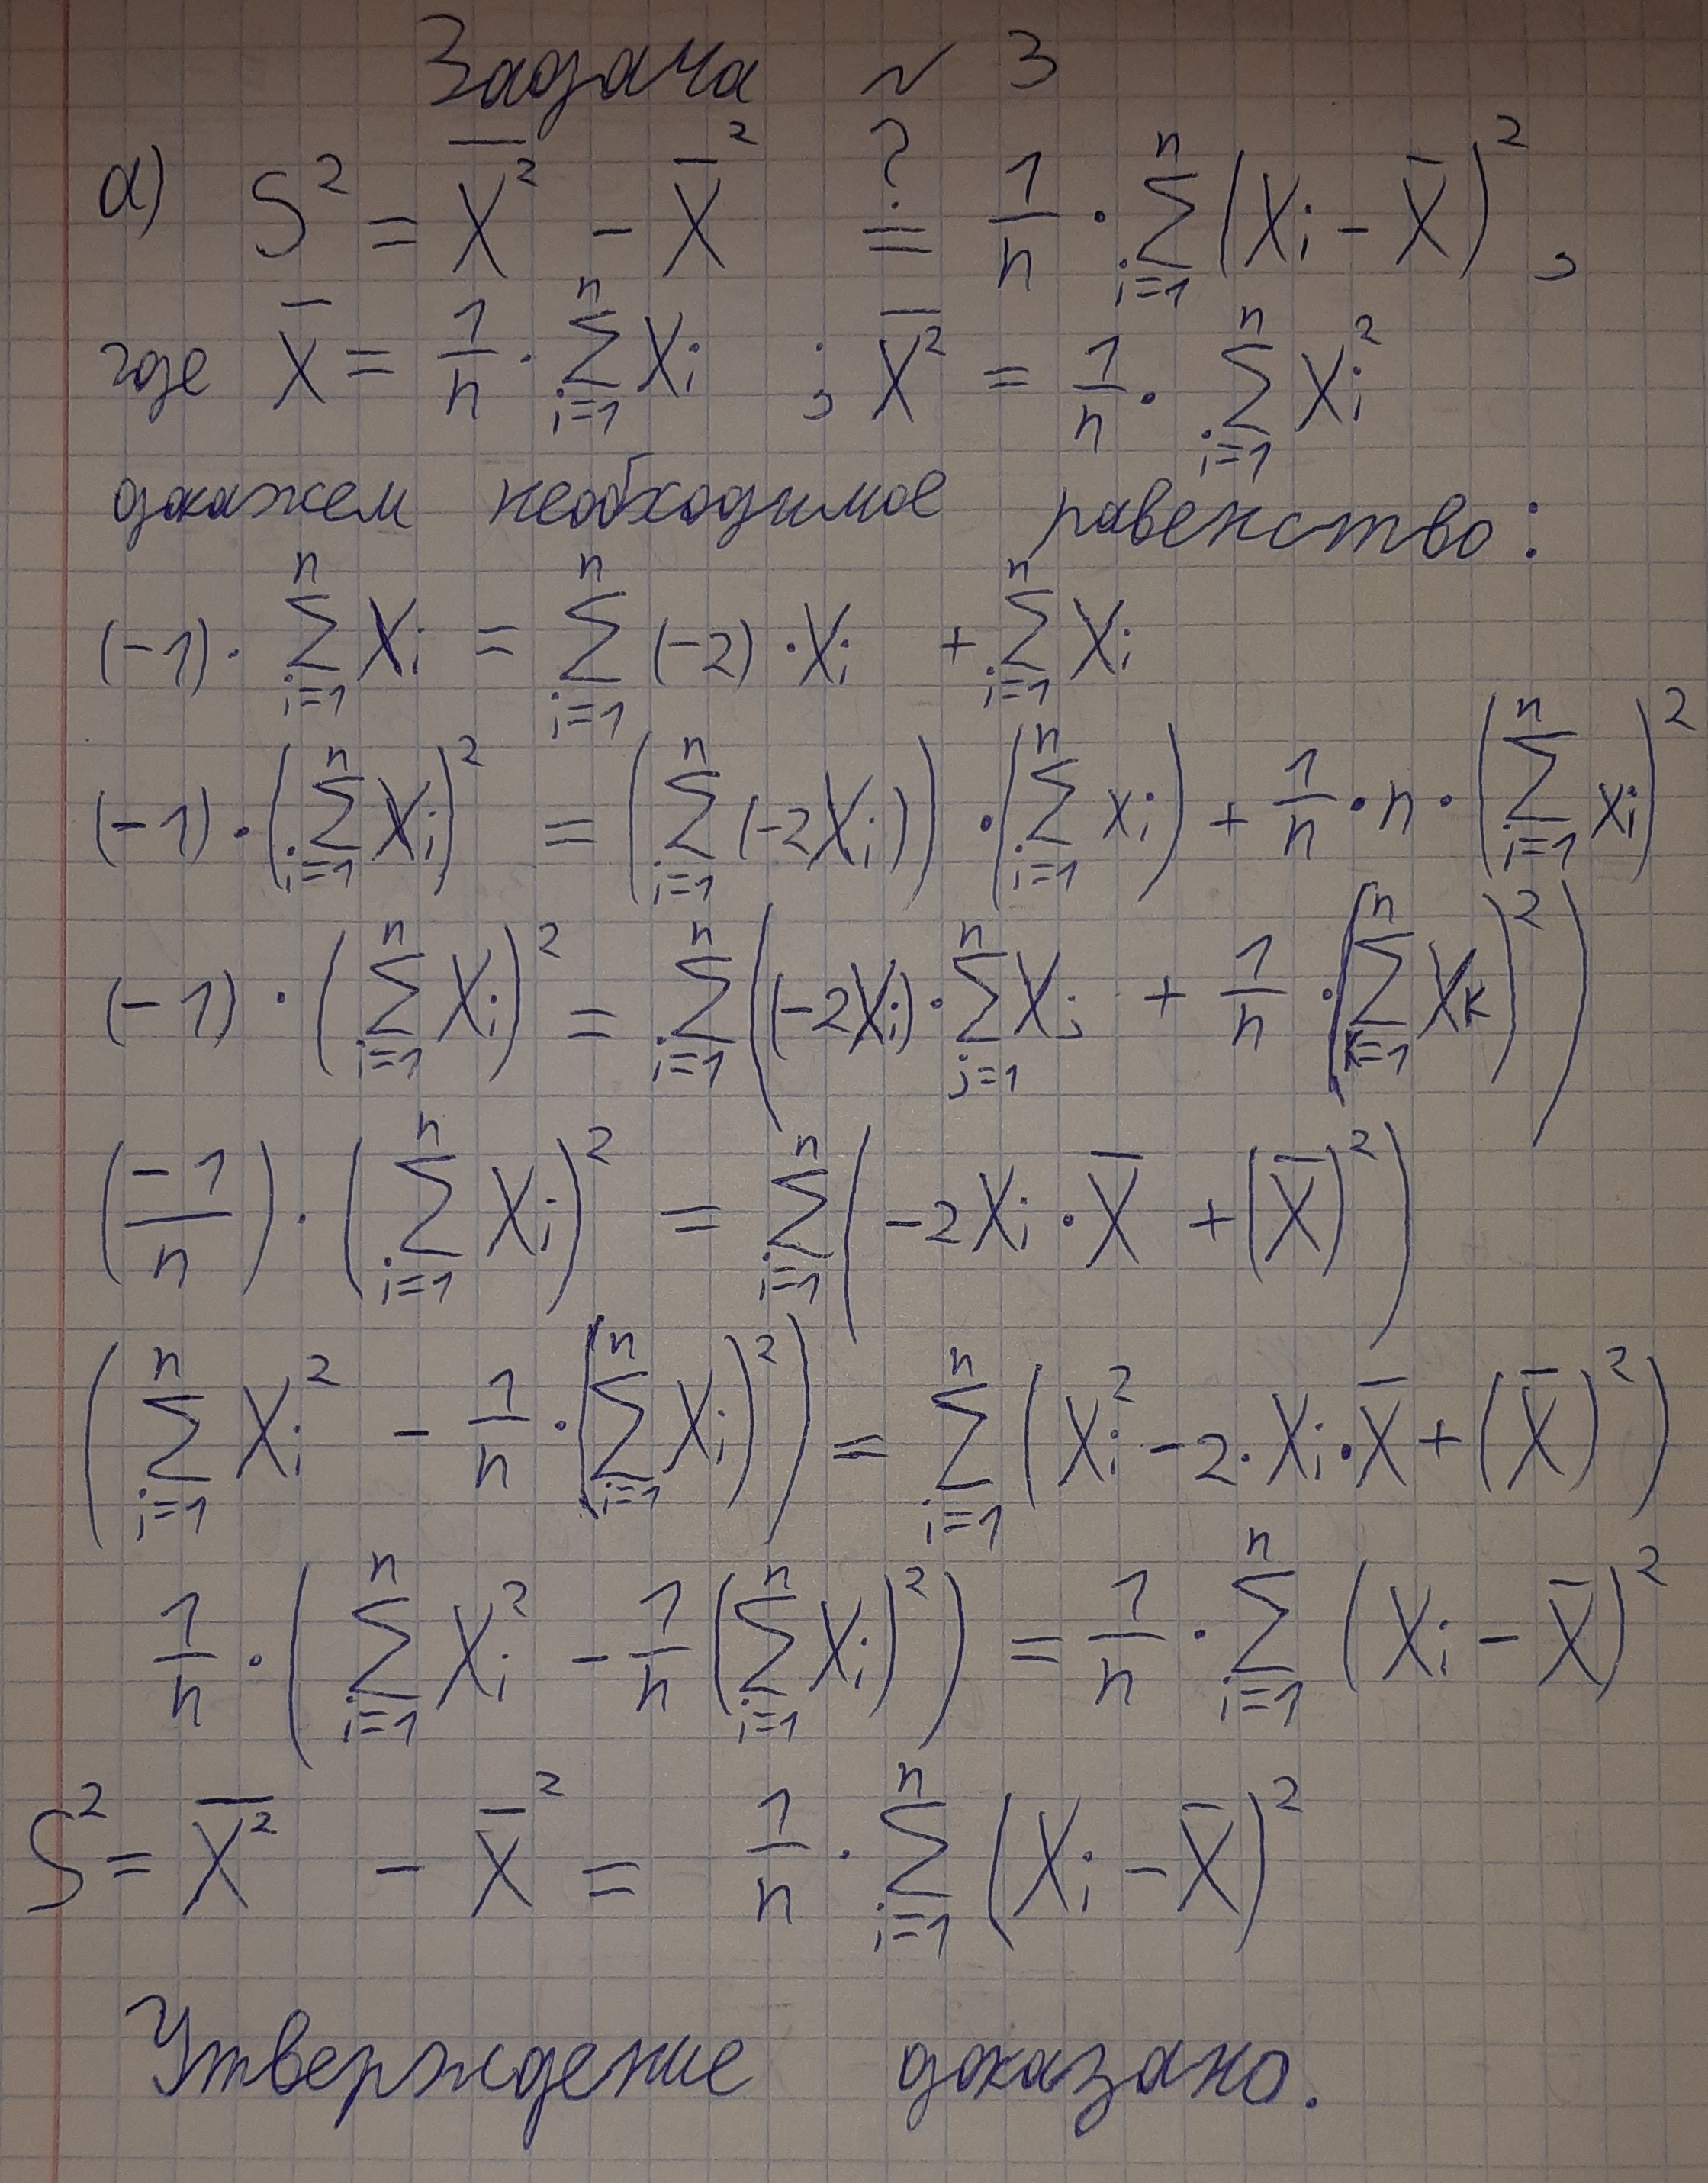 Задача № 3
а) S² = \overline{X²} - \overline{X}² ?= \frac{1}{n} · \sum_{i=1}^{n} (X_i - \overline{X})²,
где \overline{X} = \frac{1}{n} · \sum_{i=1}^{n} X_i ; \overline{X²} = \frac{1}{n} · \sum_{i=1}^{n} X_i²
докажем необходимое равенство:
(-1) · \sum_{i=1}^{n} X_i = \sum_{i=1}^{n} (-2) · X_i + \sum_{i=1}^{n} X_i
(-1) · (\sum_{i=1}^{n} X_i)² = (\sum_{i=1}^{n} (-2X_i)) · (\sum_{i=1}^{n} x_i) + \frac{1}{n} · n · (\sum_{i=1}^{n} x_i)²
(-1) · (\sum_{i=1}^{n} X_i)² = \sum_{i=1}^{n} ((-2X_i) · \sum_{j=1}^{n} X_j + \frac{1}{n} · (\sum_{k=1}^{n} X_k)²)
(\frac{-1}{n}) · (\sum_{i=1}^{n} X_i)² = \sum_{i=1}^{n} (-2X_i · \overline{X} + (\overline{X})²)
(\sum_{i=1}^{n} X_i² - \frac{1}{n} · (\sum_{i=1}^{n} X_i)²) = \sum_{i=1}^{n} (X_i² - 2 · X_i · \overline{X} + (\overline{X})²)
\frac{1}{n} · (\sum_{i=1}^{n} X_i² - \frac{1}{n} (\sum_{i=1}^{n} X_i)²) = \frac{1}{n} · \sum_{i=1}^{n} (X_i - \overline{X})²
S² = \overline{X²} - \overline{X}² = \frac{1}{n} · \sum_{i=1}^{n} (X_i - \overline{X})²
Утверждение доказано.